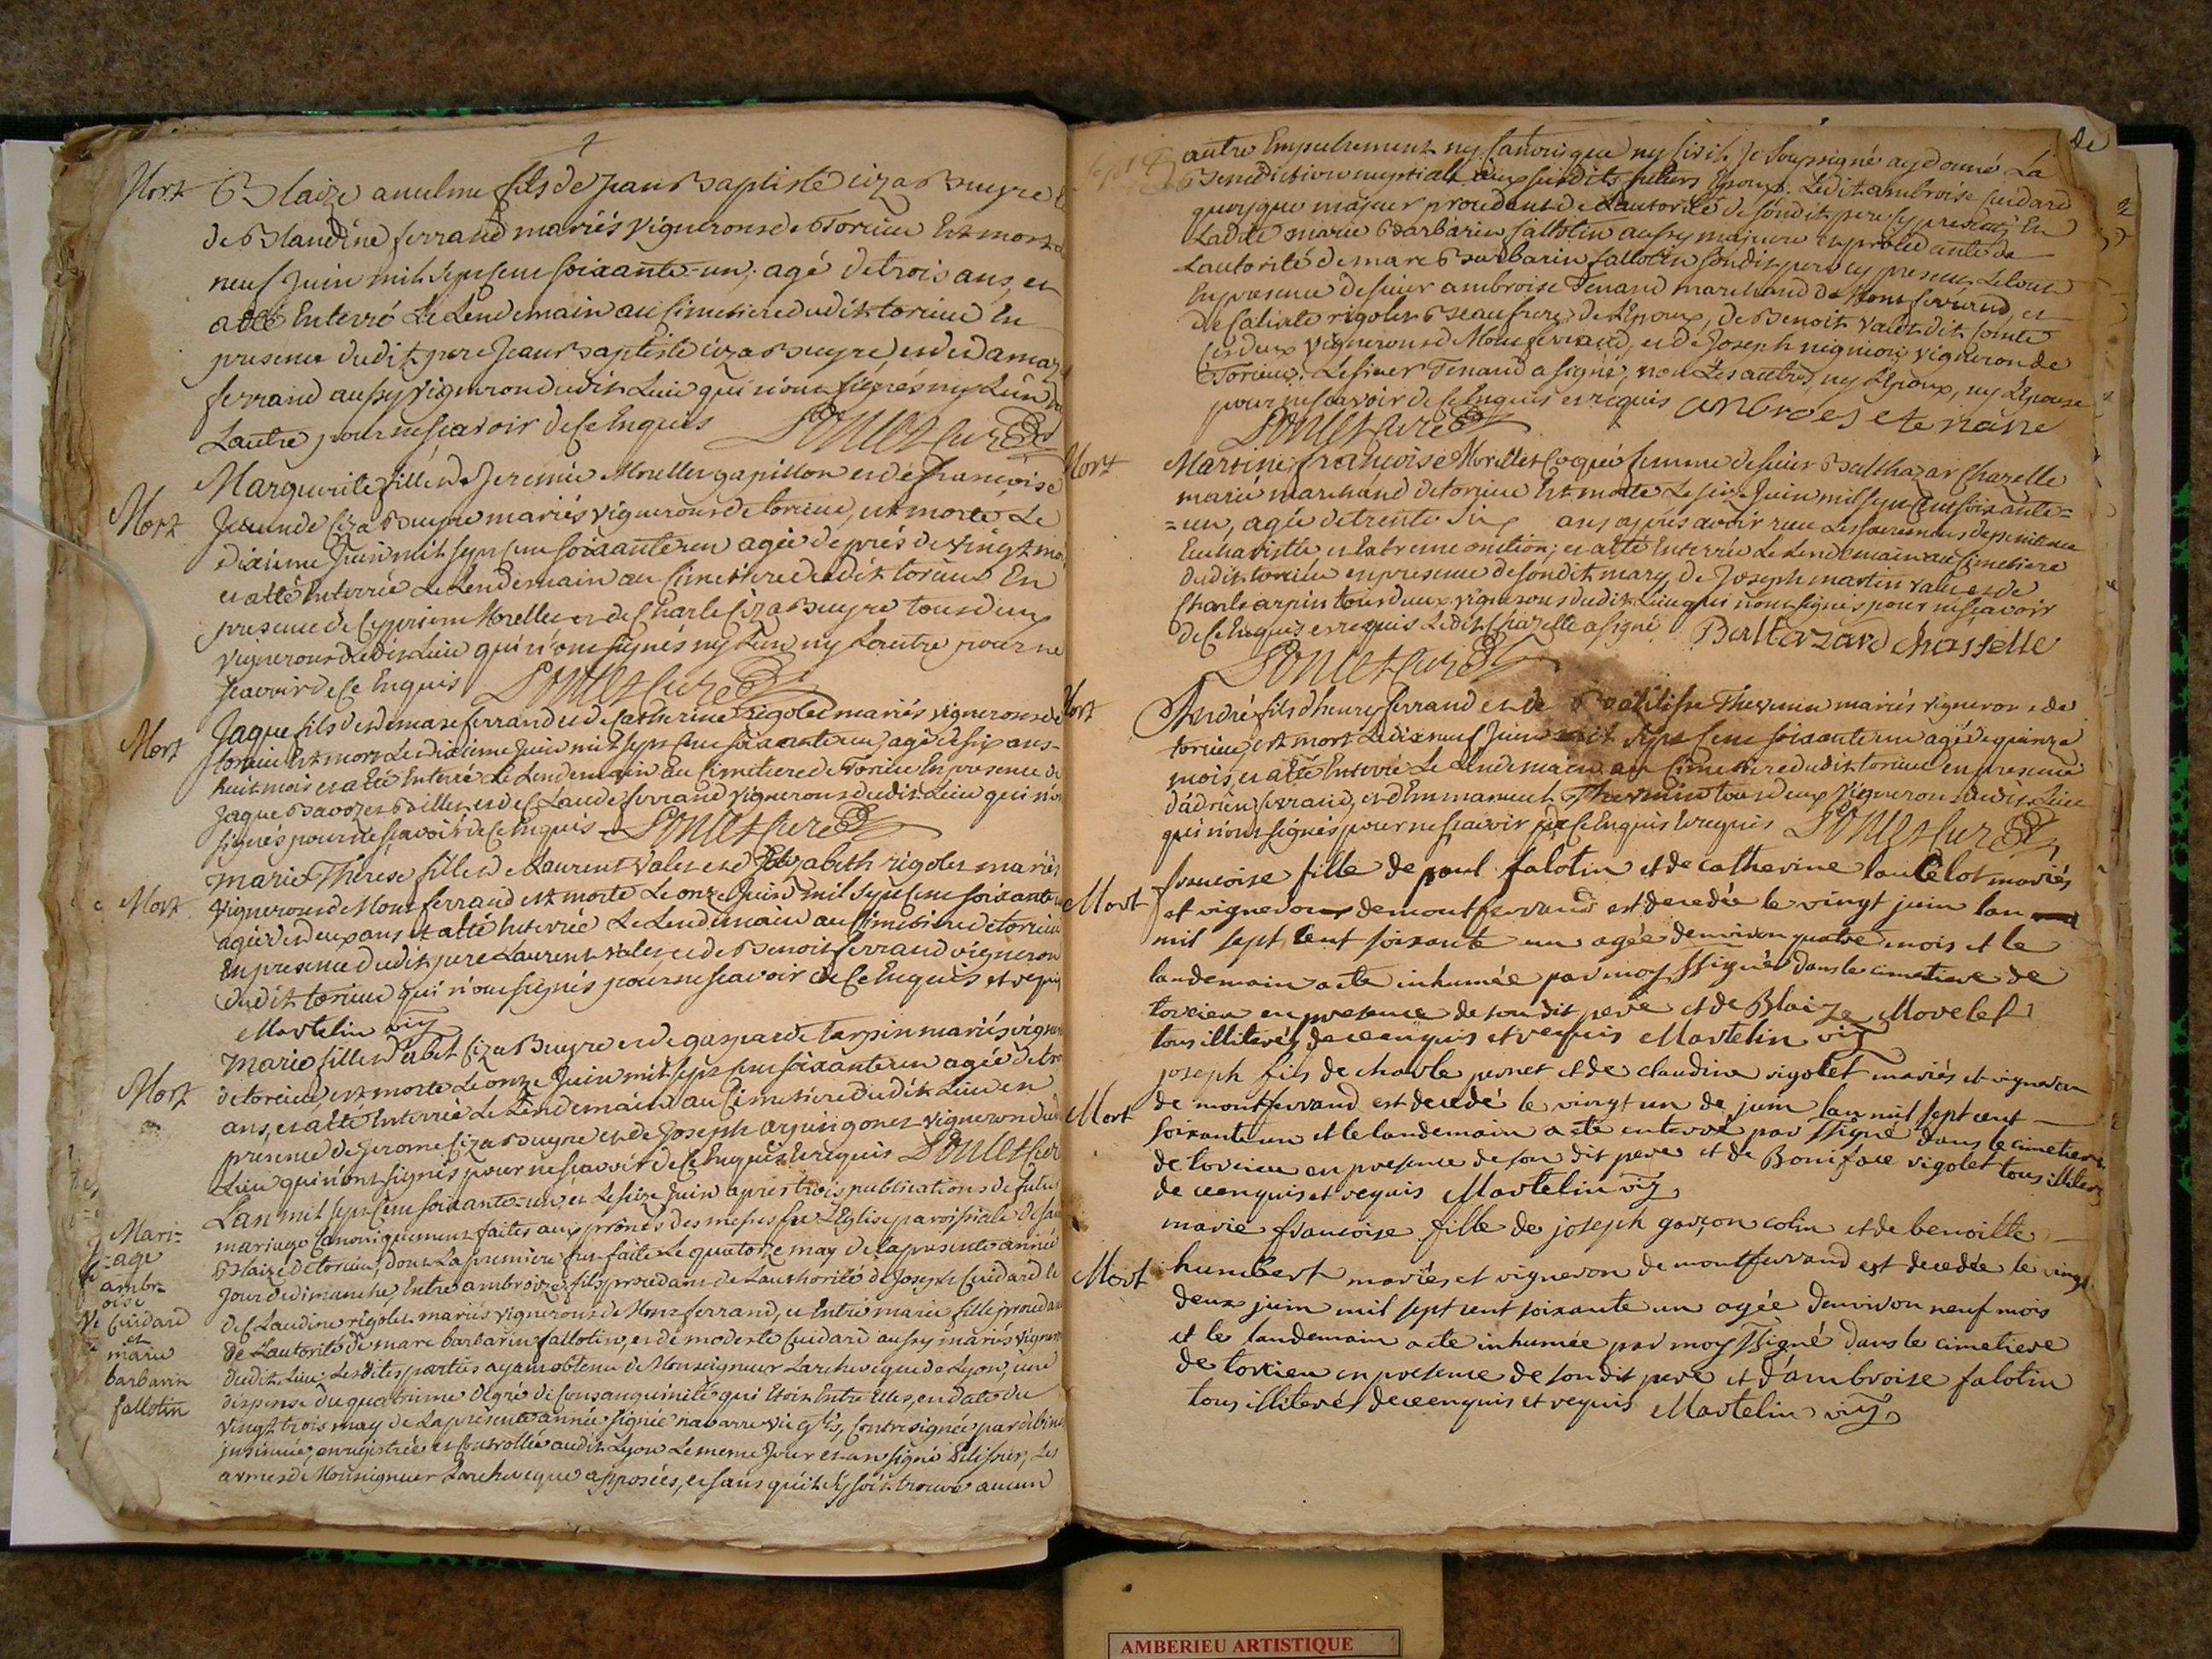 Mort
Blaize anulme fils de Jean Baptiste ciza Bruyre
de Blandine ferrand mariés vignerons de Torcieu est mort
neuf Juin mil sept cent soixante-un, agé de trois ans, et
a eté Enterré Le Lendemain au Cimetiere dudit torcieu En
presence dudit pere Jean Baptiste ciza Bruyre, et de
ferrand aussy vigneron dudit Lieu qui n'ont signés ny L'un
L'autre pour ne scavoir de ce Enquis
Poncet Curé
Mort
Marguerite fille de Jeremie Morellet papillon et de françoise
Jucunde Ciza Bruyre mariés vignerons de torcieu, est morte Le
dixieme Juin mil sept cent soixante un agée de près de vingt
et a eté Enterrée Le Lendemain au Cimetiere dudit torcieu En
presence de Cyprien Morellet et de Charle Ciza Bruyre tous deux
vignerons dudit Lieu qui n'ont signés ny L'un ny L'autre pour ne
scavoir de ce Enquis Poncet Curé
Mort
Jaque fils de demase ferrand et de Catherine rigolet mariés vignerons de
torcieu Est mort Le dixieme Juin mil sept cent soixante un, agé de six ans
huit mois et a eté Enterré Le Lendemain au Cimetiere de Torcieu En presence de
Jaque Savozet Billet et de Claude ferrand vignerons dudit Lieu qui n'ont
signés pour ne scavoir de ce Enquis Poncet Curé
Mort
Marie Thérese fille de Laurent Valet et d'Elizabeth rigolet mariés
vignerons de Montferrand est morte Le onze Juin mil sept cent soixante un
agée de deux ans et a eté Enterrée Le Lendemain au Cimetiere de torcieu
En presence dudit pere Laurent Valet et de Benoit ferrand vigneron
dudit torcieu qui n'ont signés pour ne scavoir de ce Enquis et requis
Martelin vic
Mort
Marie fille d'abel Ciza Bruyre et de gasparde Tarpin mariés
de torcieu, est morte Le onze Juin mil sept cent soixante un agée de
ans, et a eté Enterrée Le Lendemain au Cimetiere dudit Lieu en
presence de Jerome Ciza Bruyre et de Joseph arpin gonet vigneron dudit
Lieu qui n'ont signés pour ne scavoir de ce Enquis et requis Poncet Curé
Mari=
=age
ambr=
oise
Cuidard
et
marie
barbarin
fallotin
L'an mil sept cent soixante-un, et Le seize Juin apres trois publications de futur
mariage Canoniquement faites aux prônes des messes de L'Eglise paroissiale de saint
Blaize de torcieu, dont La premiere fut faite Le quatorze may de la presente année
Jour de dimanche, Entre ambroize fils procedant de L'authorité de Joseph Cuidard et
de Claudine rigolet mariés vignerons de Montferrand, et Entre marie fille procedant
de L'autorité de marc barbarin fallotin, et de modeste Cuidard aussy mariés vignerons
dudit Lieu; Lesdites parties ayant obtenu de Monseigneur L'archeveque de Lyon, une
dispense du quatrieme degré de Consanguinité qui Etoit Entre elles, en date du
vingt trois may de La presente année signée navarre vic. gral, Contresignée par
insinuée, enregistrée et Controllée audit Lyon Le meme Jour et an signé Pelissier, Les
armes de Monseigneur L'archeveque apposées, et sans qu'il s'y soit trouvé aucun
autre Empechement ny Canonique ny Civil. Je soussigné ay donné La
Benediction nuptiale aux susdits futurs Epoux. Ledit ambroise Cuidard
quoyque majeur procedant de L'autorité de sondit pere cy present; Et
Ladite marie Barbarin fallotin aussy majeure et procedante de
L'autorité de marc Barbarin fallotin sondit pere cy present, Le tout
En presence de sieur ambroise Tenand marchand de Montferrand, et
de Calixte rigolet Beaufrere de L'Epoux, de Benoit Valet dit Comte
Ces deux vignerons de Montferrand, et de Joseph vigneron de
Torcieu. Le sieur Tenand a signé, non Les autres, ny L'Epoux, ny L'Epouse
pour ne scavoir de ce Enquis et requis
Poncet Curé
Mort
Martine françoise Morellet Coqué femme de sieur Balthazar Chazelle
marié marchand de torcieu Est morte Le seize Juin mil sept cent soixante=
=un, agée de trente six ans après avoir reçu Les sacremens de penitence
Eucharistie et Extreme onction; et a eté Enterrée Le Lendemain au Cimetiere
dudit torcieu en presence de sondit mary, de Joseph martin valet et de
Charle arpin tous deux vignerons dudit Lieu qui n'ont signés pour ne scavoir
de ce Enquis et requis Ledit Chazelle a signé Baltazard chasselle
Poncet Curé
Mort
André fils d'henry ferrand et de Batilisse Thevenin mariés vignerons de
torcieu, est mort Le dixneuf Juin mil sept cent soixante un agé de quinze
mois, et a eté Enterré Le Lendemain au Cimetiere dudit torcieu en presence
d'adrien ferrand, et d'Emmanuel Thevenin tous deux vignerons dudit Lieu
qui n'ont signés pour ne scavoir de ce Enquis et requis Poncet Curé
Mort
francoise fille de paul falotin et de catherine lancelot mariés
et vignerons de montferrand est decedée le vingt juin lan
mil sept cent soixante un agée denviron quatre mois et le
landemain a ete inhumée par moy ssigné dans le cimetiere de
torcieu en presence de son dit pere et de Blaize Morelet
tous illiterés de ce enquis et requis Martelin vic
Mort
joseph fils de charle pernet et de claudine rigolet mariés et vigneron
de montferrand est decedé le vingt un de juin lan mil sept cent
soixante un et le landemain a ete enterré par ssigné dans le cimetiere
de torcieu en presence de son dit pere et de Boniface rigolet tous illiterés
de ce enquis et requis Martelin vic
Mort
marie francoise fille de joseph garçon colin et de benoitte
humbert mariés et vigneron de montferrand est decedée le vingt
deux juin mil sept cent soixante un agée denviron neuf mois
et le landemain a ete inhumée par moy ssigné dans le cimetiere
de torcieu en presence de son dit pere et d'ambroise falotin
tous illiterés de ce enquis et requis Martelin vic
AMBERIEU ARTISTIQUE